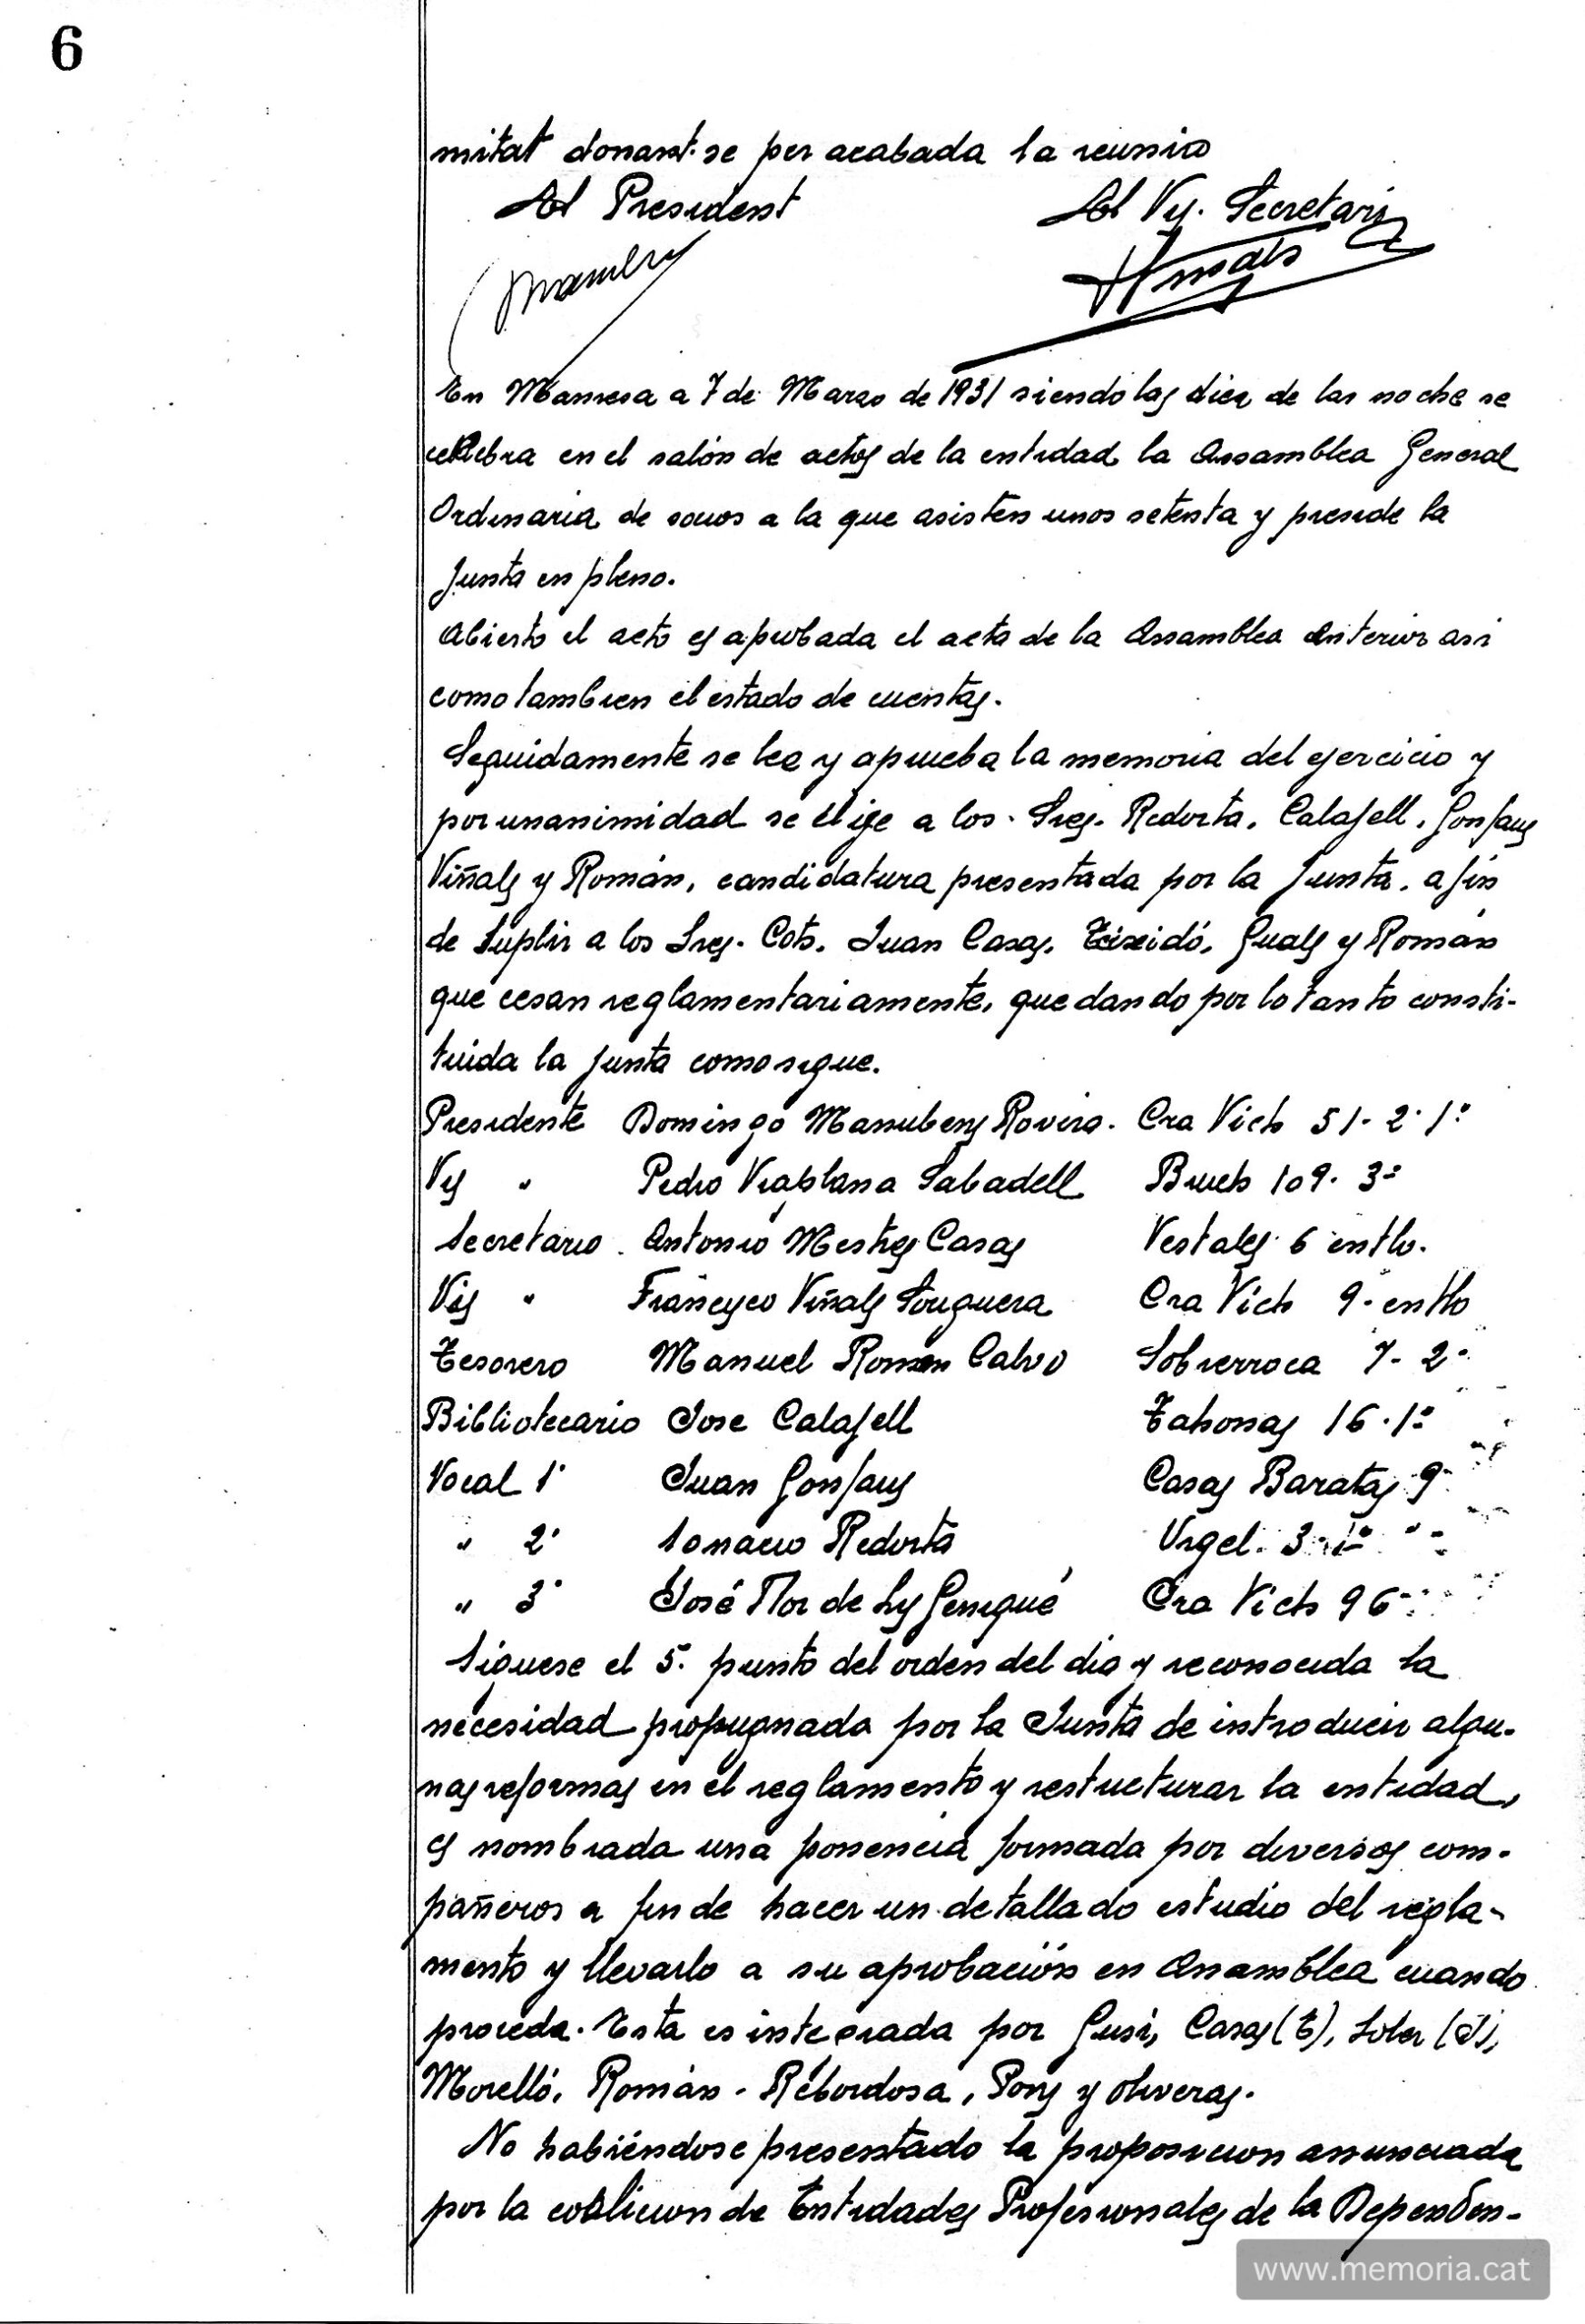 6
mitat donant-se per acabada la reunio
El President El Vis. Secretari
En Manresa a 7 de Marzo de 1931 siendo las diez de las noche se
celebra en el salón de actos de la entidad la Assamblea General
Ordinaria de socios a la que asisten unos setenta y preside la
Junta en pleno.
Abierto el acto es aprobada el acta de la Assamblea anterior asi
como tambien el estado de cuentas.
Seguidamente se lee y aprueba la memoria del ejercicio y
por unanimidad se elige a los Sres. Redorta, Calafell, Gonfaus
Viñals y Román, candidatura presentada por la Junta, a fin
de suplir a los Sres. Cots, Juan Casas, Teixidó, Guals y Román
que cesan reglamentariamente, quedando por lo tanto consti-
tuida la Junta como sigue.
Presidente Domingo Manubens Rovira. Cra Vich 51- 2º 1º
Vis " Pedro Viaplana Sabadell Bruch 109. 3º
Secretario. Antonio Mestres Casas Vestales 6 entlo.
Vis " Francisco Viñals Noguera Cra Vich 9- entlo
Tesorero Manuel Roman Calvo Sobrerroca 7- 2º
Bibliotecario Jose Calafell Tahonas 16. 1º
Vocal 1º Juan Gonfaus Casas Baratas 9-
" 2º Ignacio Redorta Urgel. 3- 1º
" 3º José Flor de Lys Cra Vich 96-
Siguese el 5º punto del orden del dia y reconocida la
necesidad propugnada por la Junta de introducir algu-
nas reformas en el reglamento y restucturar la entidad,
es nombrada una ponencia formada por diversos com-
pañeros a fin de hacer un detallado estudio del regla-
mento y llevarlo a su aprobación en Asamblea cuando
proceda. Esta es integrada por Gusi, Casas (E), Soler (J),
Morelló, Román - Rebordosa, Pons y Oliveras.
No habiéndose presentado la proposicion anunciada
por la coalicion de Entidades Profesionales de la Dependen-
www.memoria.cat